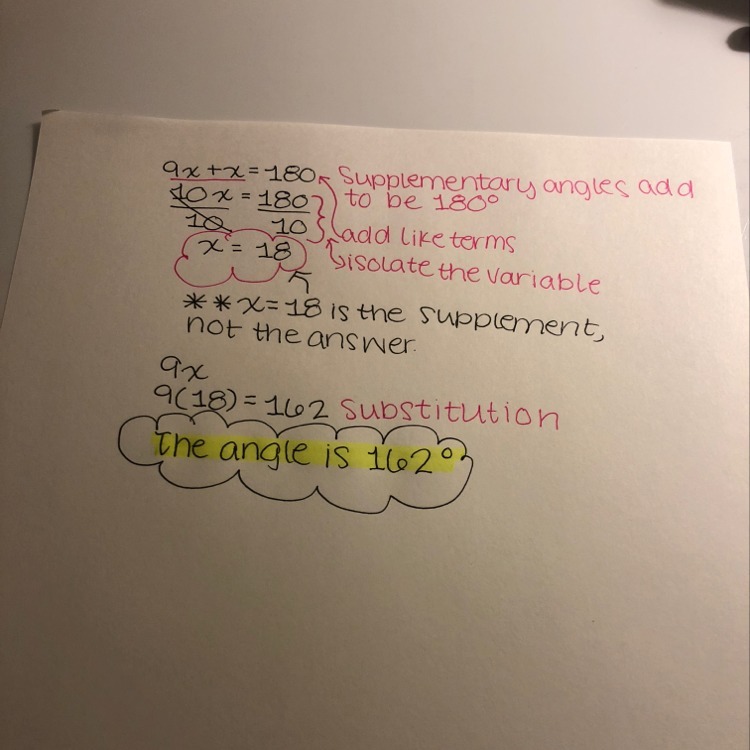 9x + x = 180 Supplementary angles add
to be 180°
10x = 180
10 10
add like terms
x = 18
isolate the variable
**x=18 is the supplement,
not the answer.
9x
9(18) = 162 Substitution
The angle is 162°